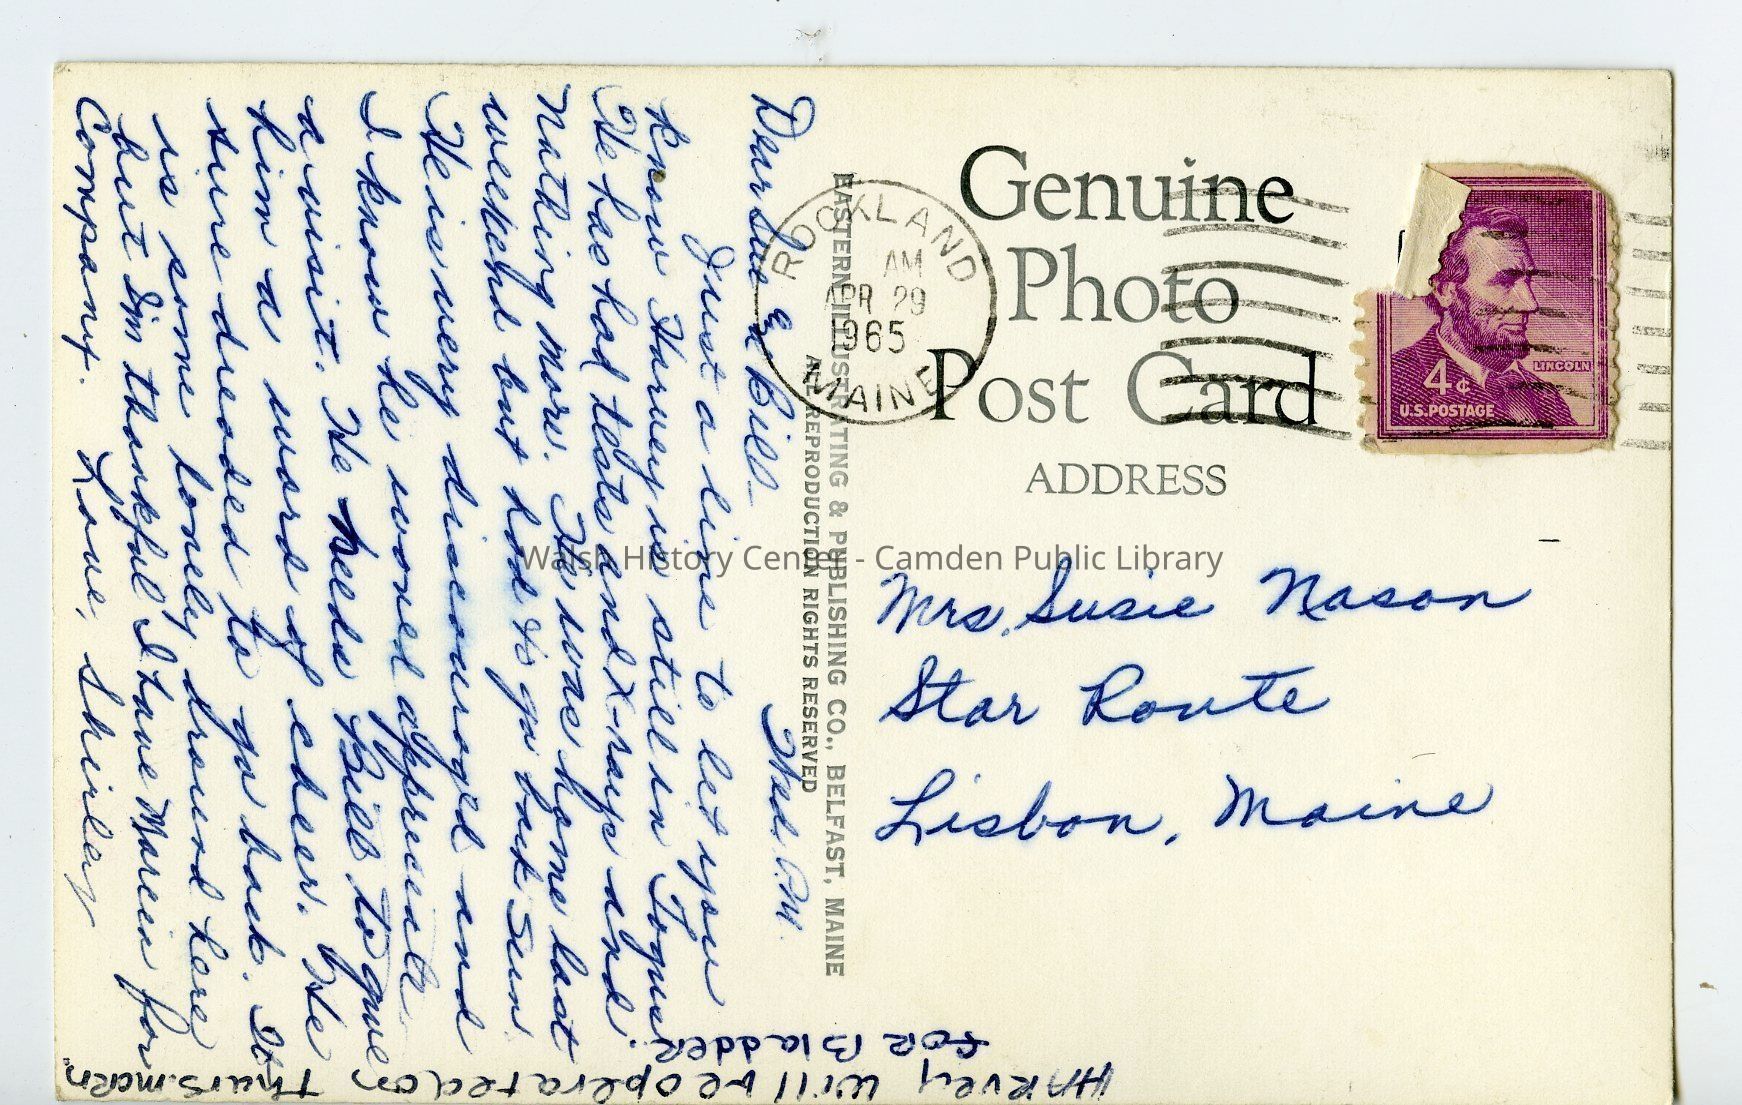 Genuine
Photo
Post Card
ADDRESS
ROCKLAND
AM
APR 29
1965
MAINE
4¢
LINCOLN
U.S. POSTAGE
Mrs. Susie Nason
Star Route
Lisbon, Maine
EASTERN ILLUSTRATING & PUBLISHING CO., BELFAST, MAINE
ALL REPRODUCTION RIGHTS RESERVED
Wed. P.M.
Dear Sue & Bill-
Just a line to let you
know Harvey is still in Togus.
He has had tests and X-rays and
nothing more. He was home last
weekend but had to go back Sun.
He is very discouraged and
I know he would appreciate
a visit. He needs Bill to give
him a word of cheer. He
sure dreaded to go back. It
is some lonely around here
but I'm thankful I have Marcia for
Company. Love, Shirley
HARvey will be operated on thurs. morn.
for Bladder.
Walsh History Center - Camden Public Library